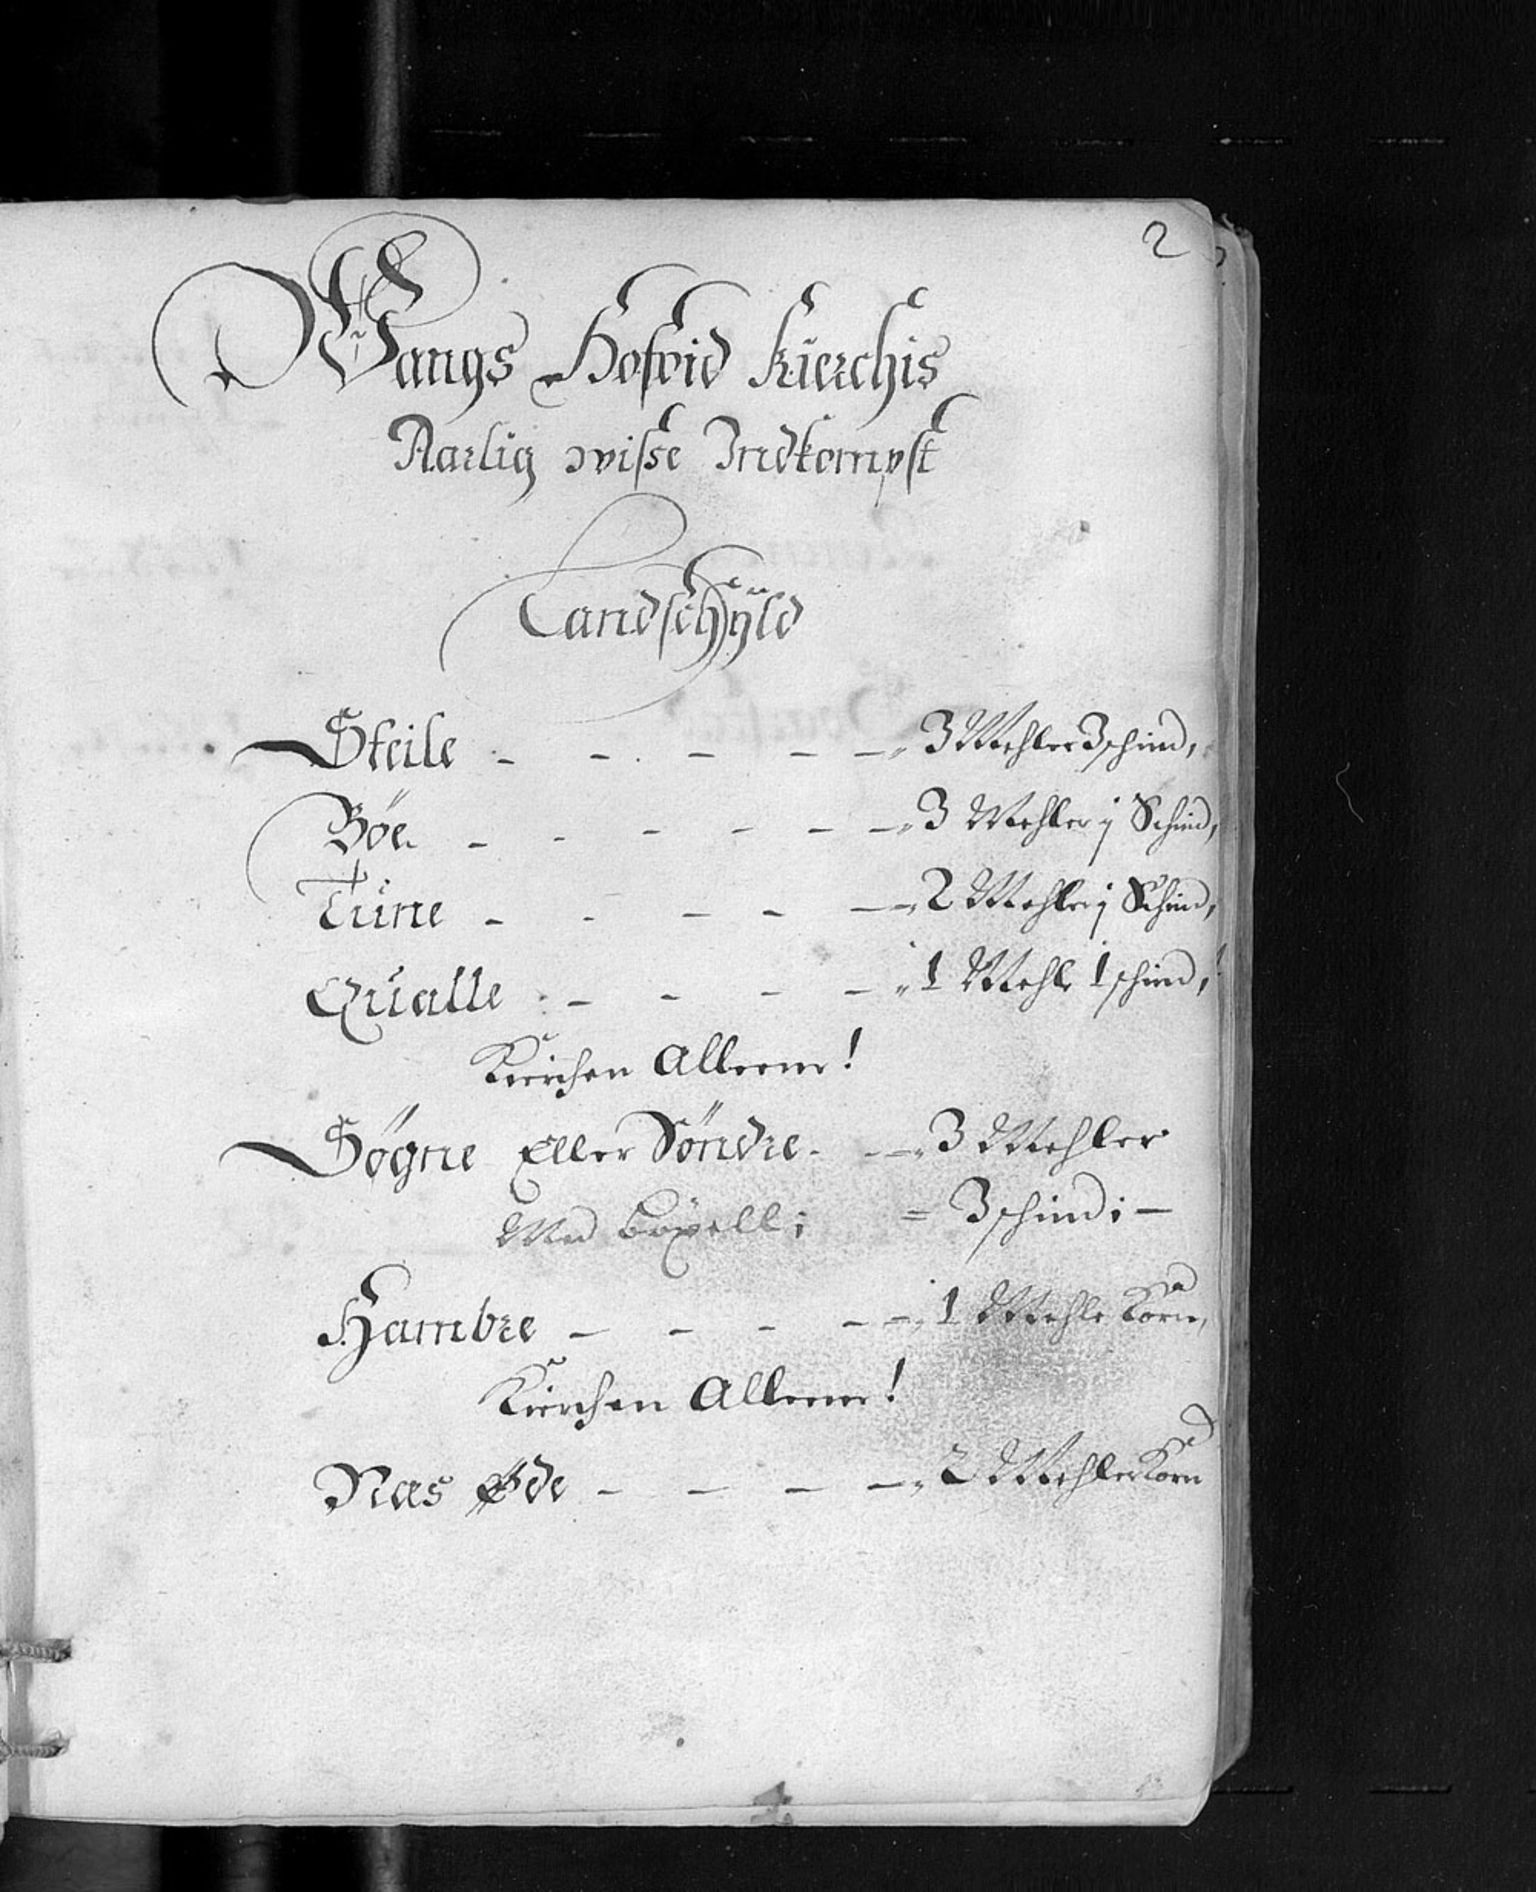 2
Wangs Hofvid Kierchis
Aarlig wisse Indkompst
Landschÿld
Steile - - - - - 3 Mehler 3 schind,
Böe - - - - - - 3 Mehler j Schind,
Tune - - - - - 2 Mehler j Schind,
Qualle - - - - 1 Mehle 1 schind,
Kirchen Alleene!
Søgne Eller Söndre - - 3 Mehler
Med Böxell; = 3 schind; -
Hambre - - - - - 1 Mehle Korn,
Kirchen Alleene!
Næs Øde - - - - 2 Mehler Korn